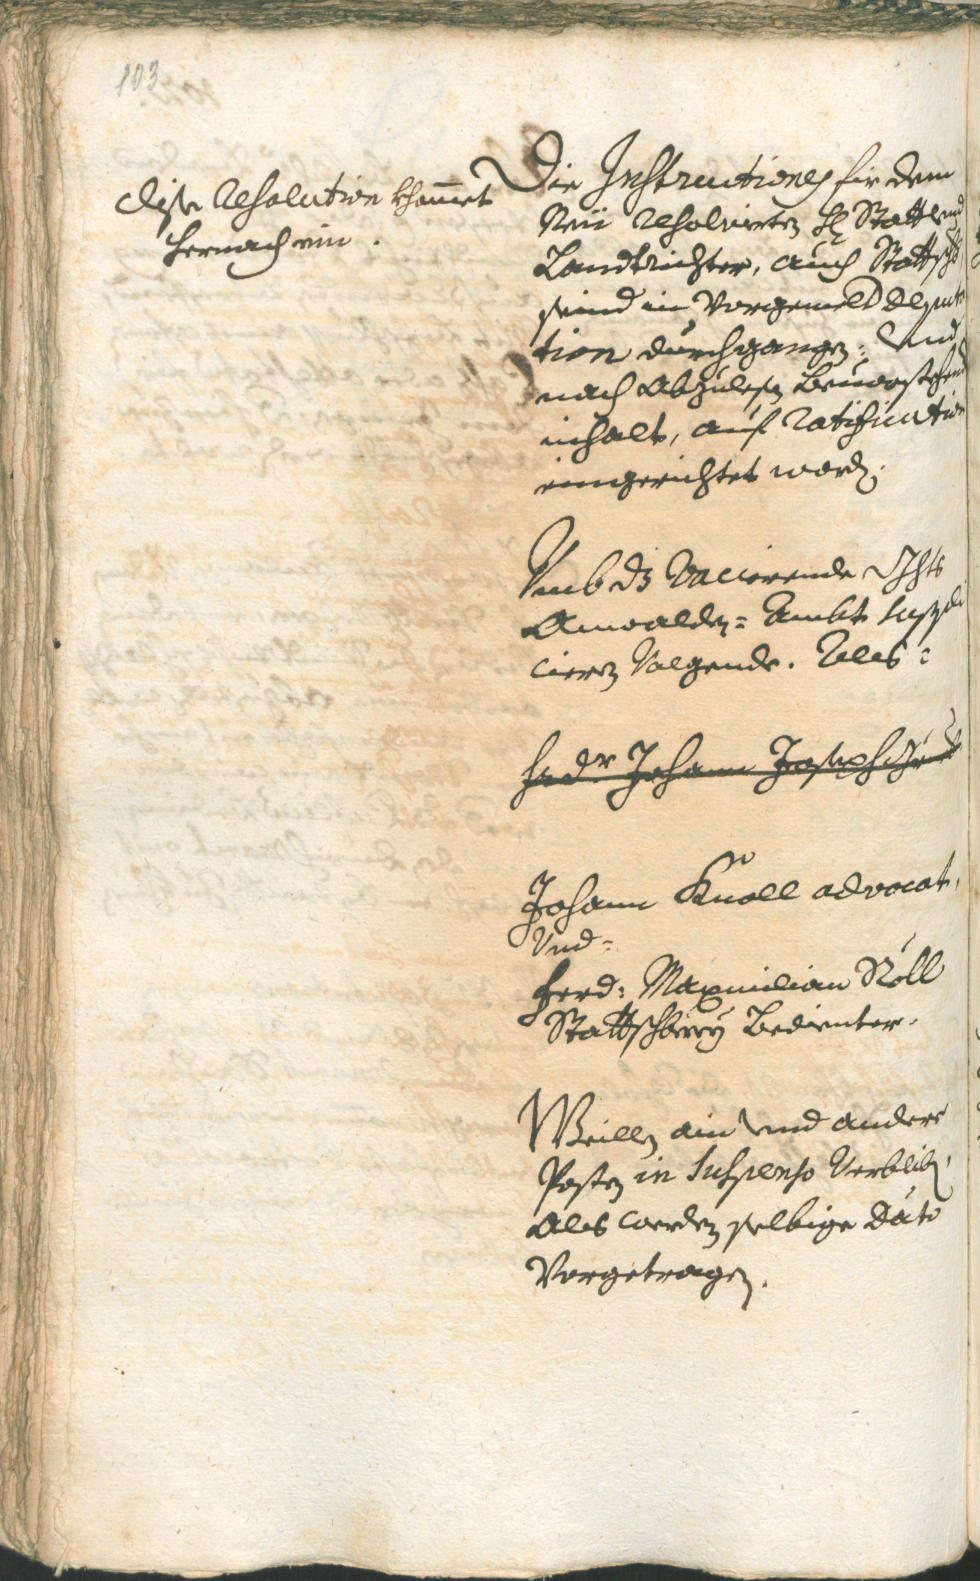 103
dise Resolution khommet
hernach ein.
Die Instructiones fir dem
Neü resolvierten H Statt und
Landtrichter, auch Stattsch
seind in Vorgemelt Deputa
tion durchgangen: und
nach Abzulesen
inhalt, auf Ratification
eingerichtet word.
Umb dz Vacierende
Anwalden= Ambt suppli
cieren Volgende. Ales:
Johann Joseph
Johann Knoll advocat,
Und=
Ferd: Maximilian Röll
Stattschbrey Bedienter.
Weillen ain und andere
Posten in Suspenso Verbliben,
Als werden selbige Dato
Vorgetragen.